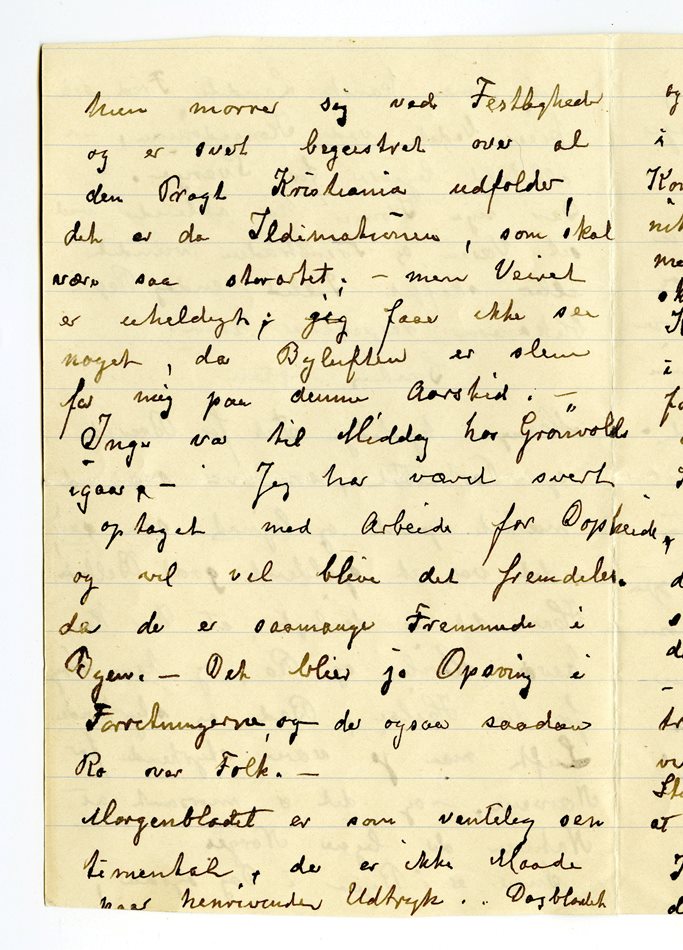 hun morrer sig ved Festligheder
og er svert begeistret over al
den Pragt Kristiania udfolder,
det er da Ildimationen, som skal
være saa storartet; – men Veiret
er uheldigt; jeg faar ikke see
noget, da Byluften er slem
for mig paa denne Aarstid. –
Inga var til Middag hos Grönvolds
igaar. – Jeg har været svert
optaget med Arbeide for
og vel vel blive det fremdeles.
da de er saamange Fremmede i
Byen. – Det blier jo Opsving i
Forretningerne, og de ogsaa saadan
Ro over Folk. –
Morgenbladet er som vanteleg sen
timental, de er ikke Maade
paa henrivende Udtryk. .. Dagbladet
og
i
Kon
nik
me
sk
i
fo
d
s
d
–
tr
ve
Sto
at
d